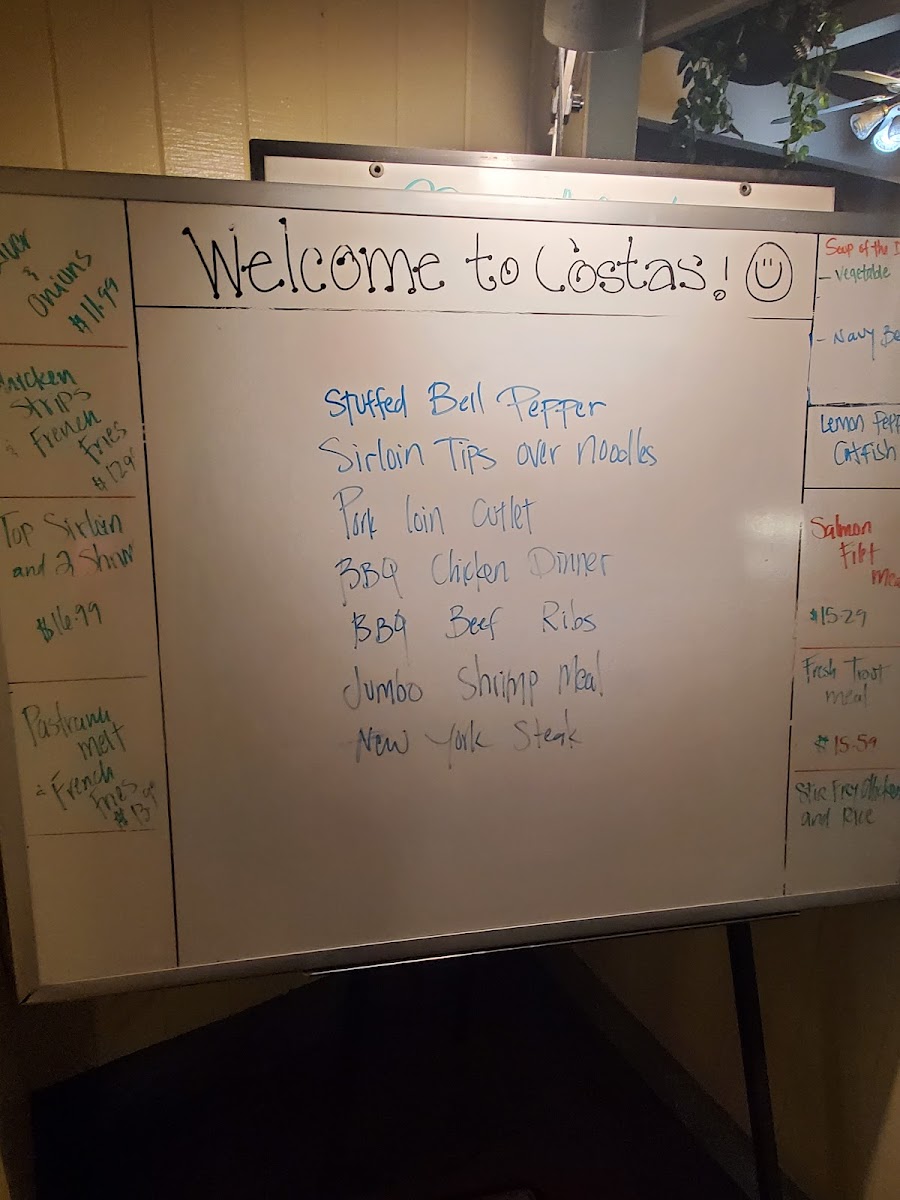 Welcome to Costas!
Onions
$11.99
Strips
French
Fries
Top Sirloin
and 2 Shrim
$16.99
Pastrami
melt
& French
Fries
Stuffed Bell Pepper
Sirloin Tips over noodles
Pork loin cutlet
BBQ Chicken Dinner
BBQ Beef Ribs
Jumbo Shrimp Meal
New York Steak
Soup of the
- Vegetable
- Navy Be
Lemon Pepp
Catfish
Salmon
Filet
mea
$15.29
Fresh Trout
meal
$15.59
Stir Fry Chicken
and Rice